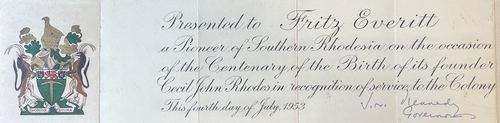 Presented to Fritz Everitt
a Pioneer of Southern Rhodesia on the occasion
of the Centenary of the Birth of its founder
Cecil John Rhodes in recognition of service to the Colony
This fourth day of July, 1953
Kennedy
Governor